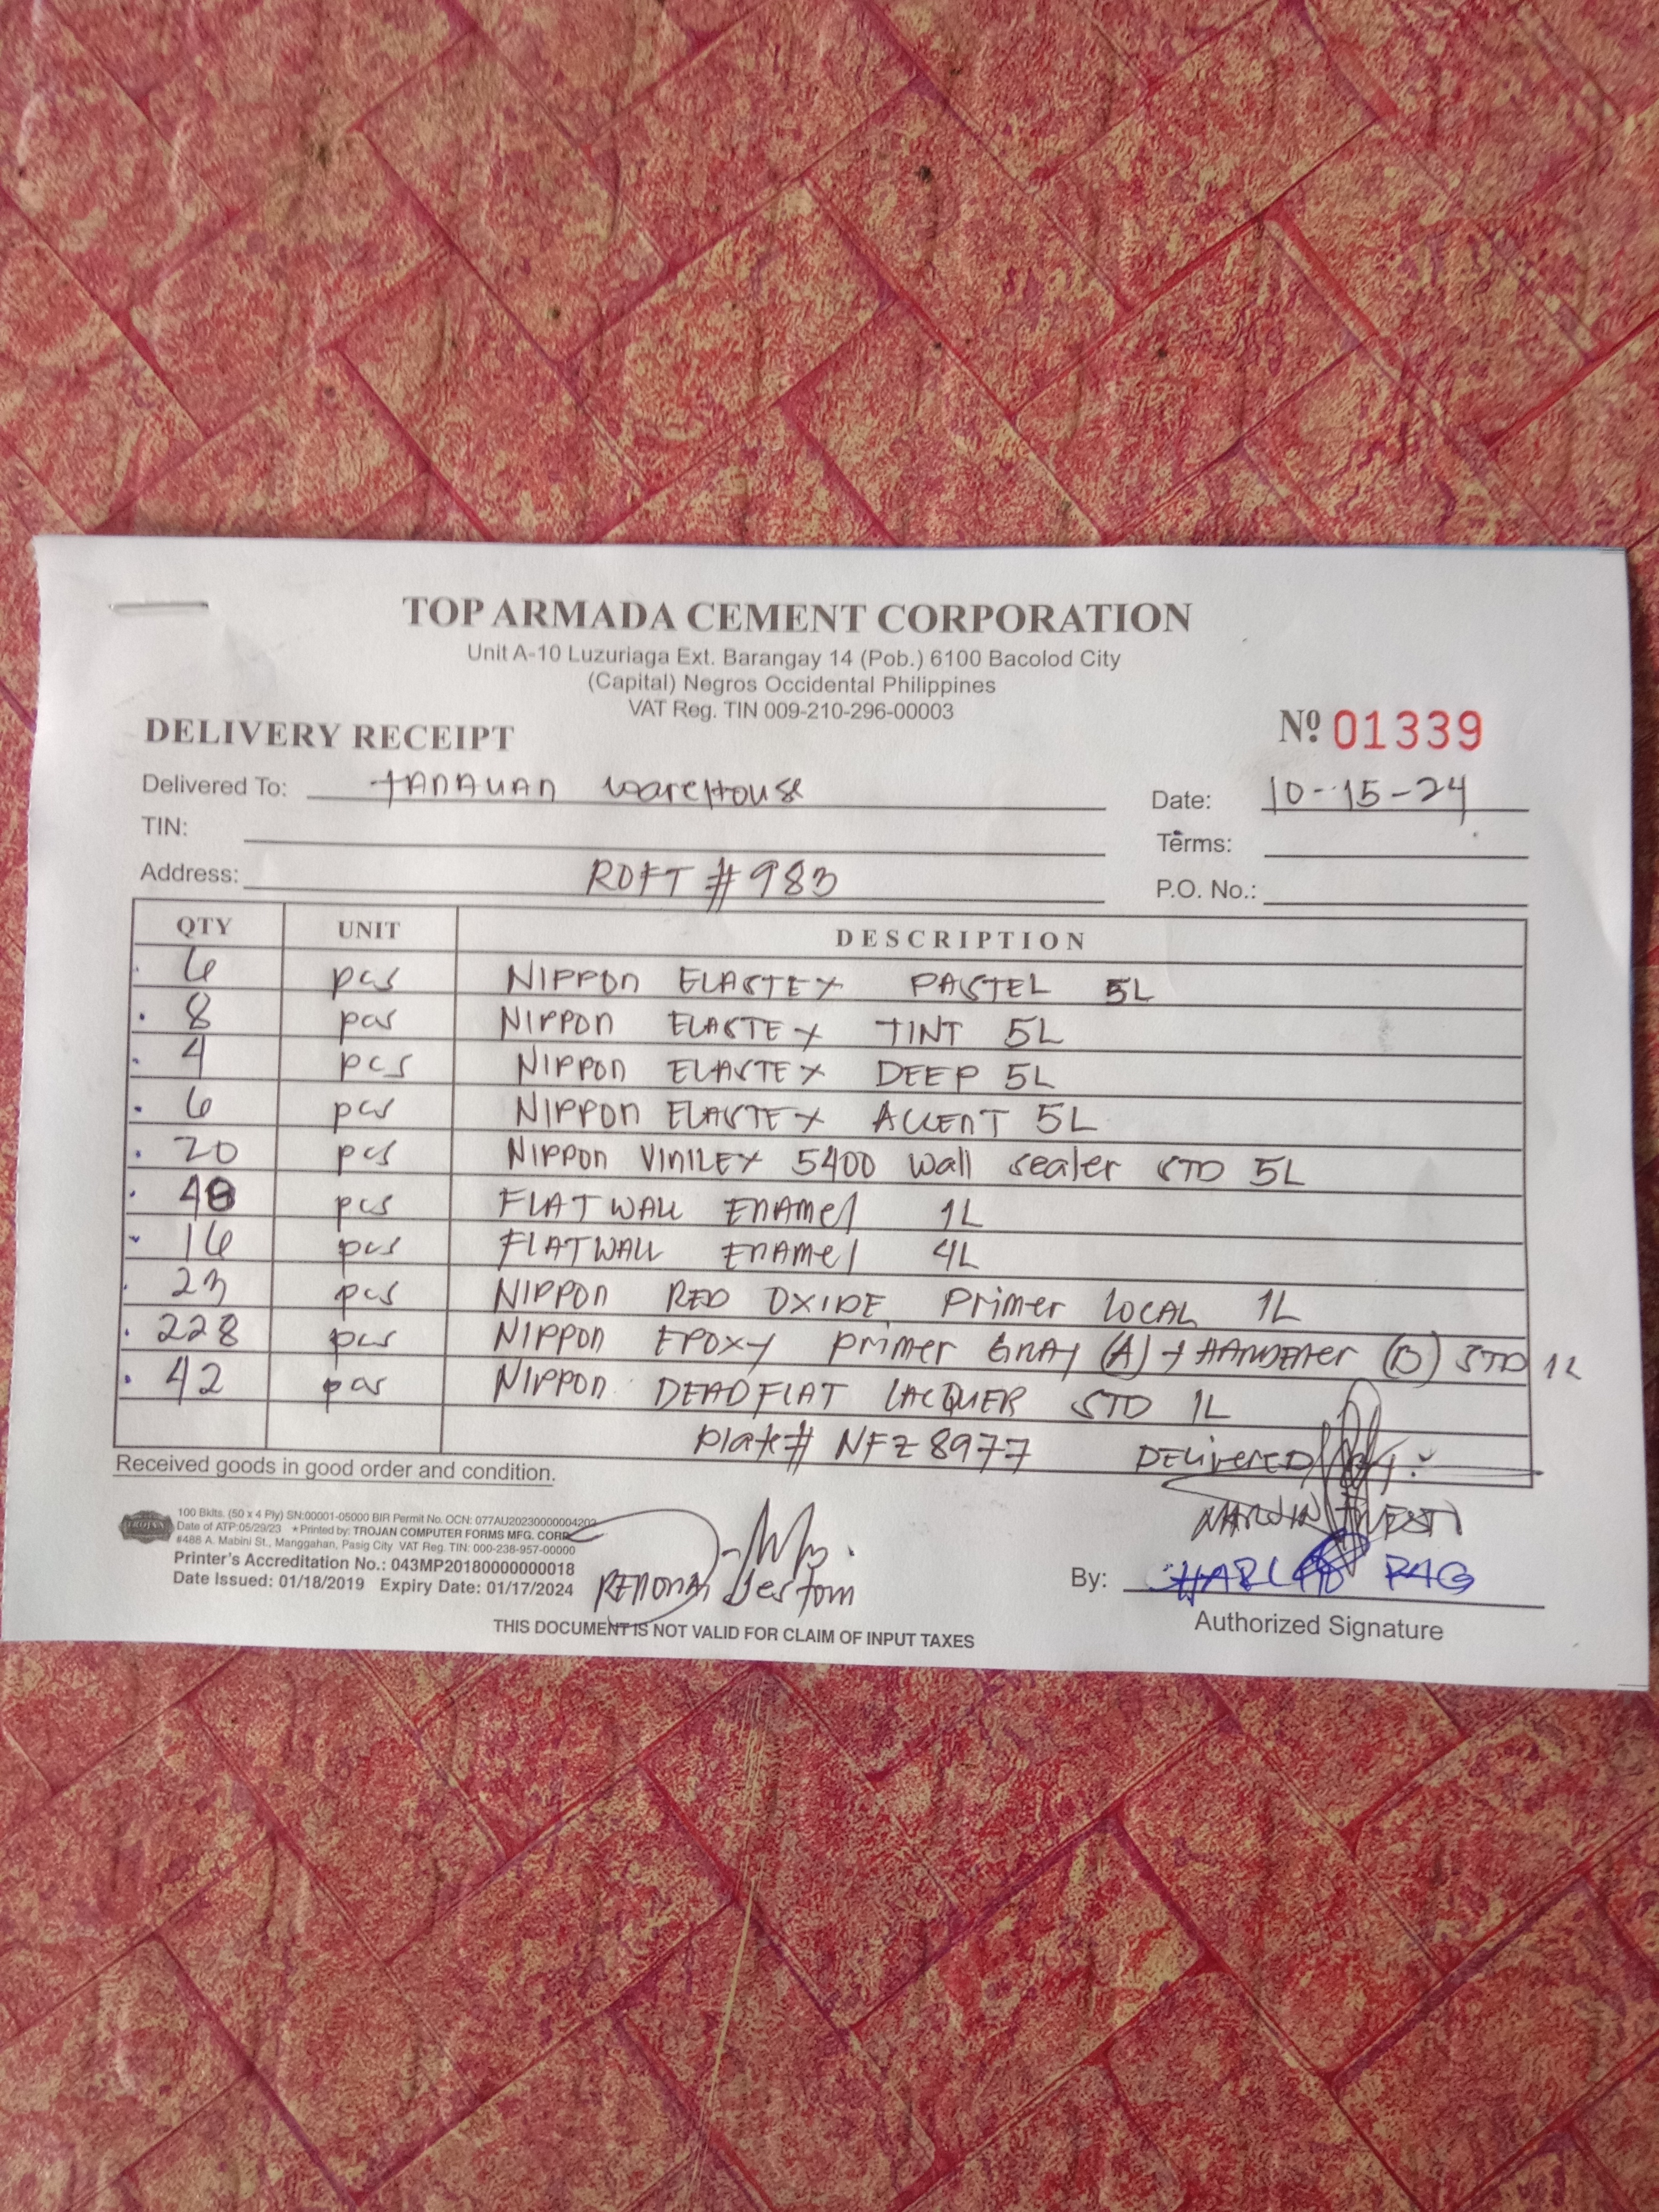 TOP ARMADA CEMENT CORPORATION
Unit A-10 Luzuriaga Ext. Barangay 14 (Pob.) 6100 Bacolod City
(Capital) Negros Occidental Philippines
VAT Reg. TIN 009-210-296-00003
DELIVERY RECEIPT Nº 01339
Delivered To: TANAUAN warehouse Date: 10-15-24
TIN: Terms:
Address: ROFT # 983 P.O. No.:
QTY UNIT DESCRIPTION
6 pcs NIPPON ELASTEX PASTEL 5L
8 pcs NIPPON ELASTEX TINT 5L
4 pcs NIPPON ELASTEX DEEP 5L
6 pcs NIPPON ELASTEX ACCENT 5L
20 pcs NIPPON VINILEX 5400 wall sealer STD 5L
pcs FLATWALL ENAMEl 1L
16 pcs FLATWALL ENAMEl 4L
23 pcs NIPPON RED OXIDE Primer LOCAL 1L
228 pcs NIPPON EPOXY primer GRAY (A) + (B) STD 1L
42 pcs NIPPON DEADFLAT LACQUER STD 1L
plate# NFZ 8977 DELIVERED
Received goods in good order and condition.
TROJAN
100 Bklts. (50 x 4 Ply) SN:00001-05000 BIR Permit No. OCN: 077AU20230000004203
Date of ATP:05/29/23 ★Printed by: TROJAN COMPUTER FORMS MFG. CORP.
#488 A. Mabini St., Manggahan, Pasig City VAT Reg. TIN: 000-238-957-00000
Printer's Accreditation No.: 043MP20180000000018
Date Issued: 01/18/2019 Expiry Date: 01/17/2024
By:
Authorized Signature
THIS DOCUMENT IS NOT VALID FOR CLAIM OF INPUT TAXES